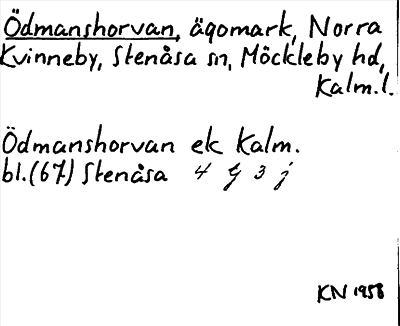 Ödmanshorvan, ägomark, Norra
Kvinneby, Stenåsa sn, Möckleby hd,
Kalm.l.
Ödmanshorvan ek Kalm.
bl.(67) Stenåsa 4 G 3 j
KN 1958